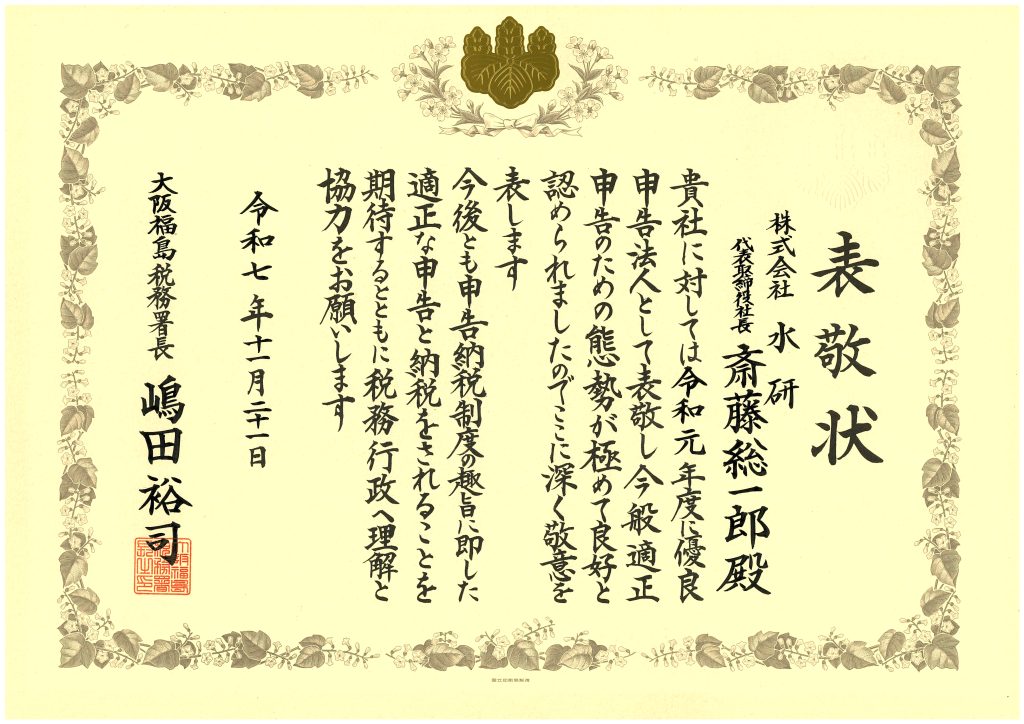 表敬状
株式会社 水研
代表取締役社長 斎藤総一郎殿
貴社に対しては令和元年度に優良
申告法人として表敬し今般適正
申告のための態勢が極めて良好と
認められましたのでここに深く敬意を
表します
今後とも申告納税制度の趣旨に即した
適正な申告と納税をされることを
期待するとともに税務行政へ理解と
協力をお願いします
令和七年十一月二十一日
大阪福島税務署長 嶋田裕司